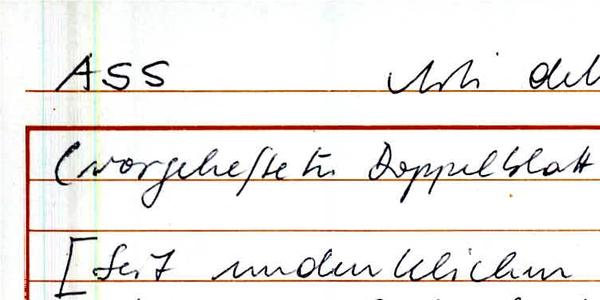 ASS
(vorgeheftetes Doppelblatt
[Seit undenklichen